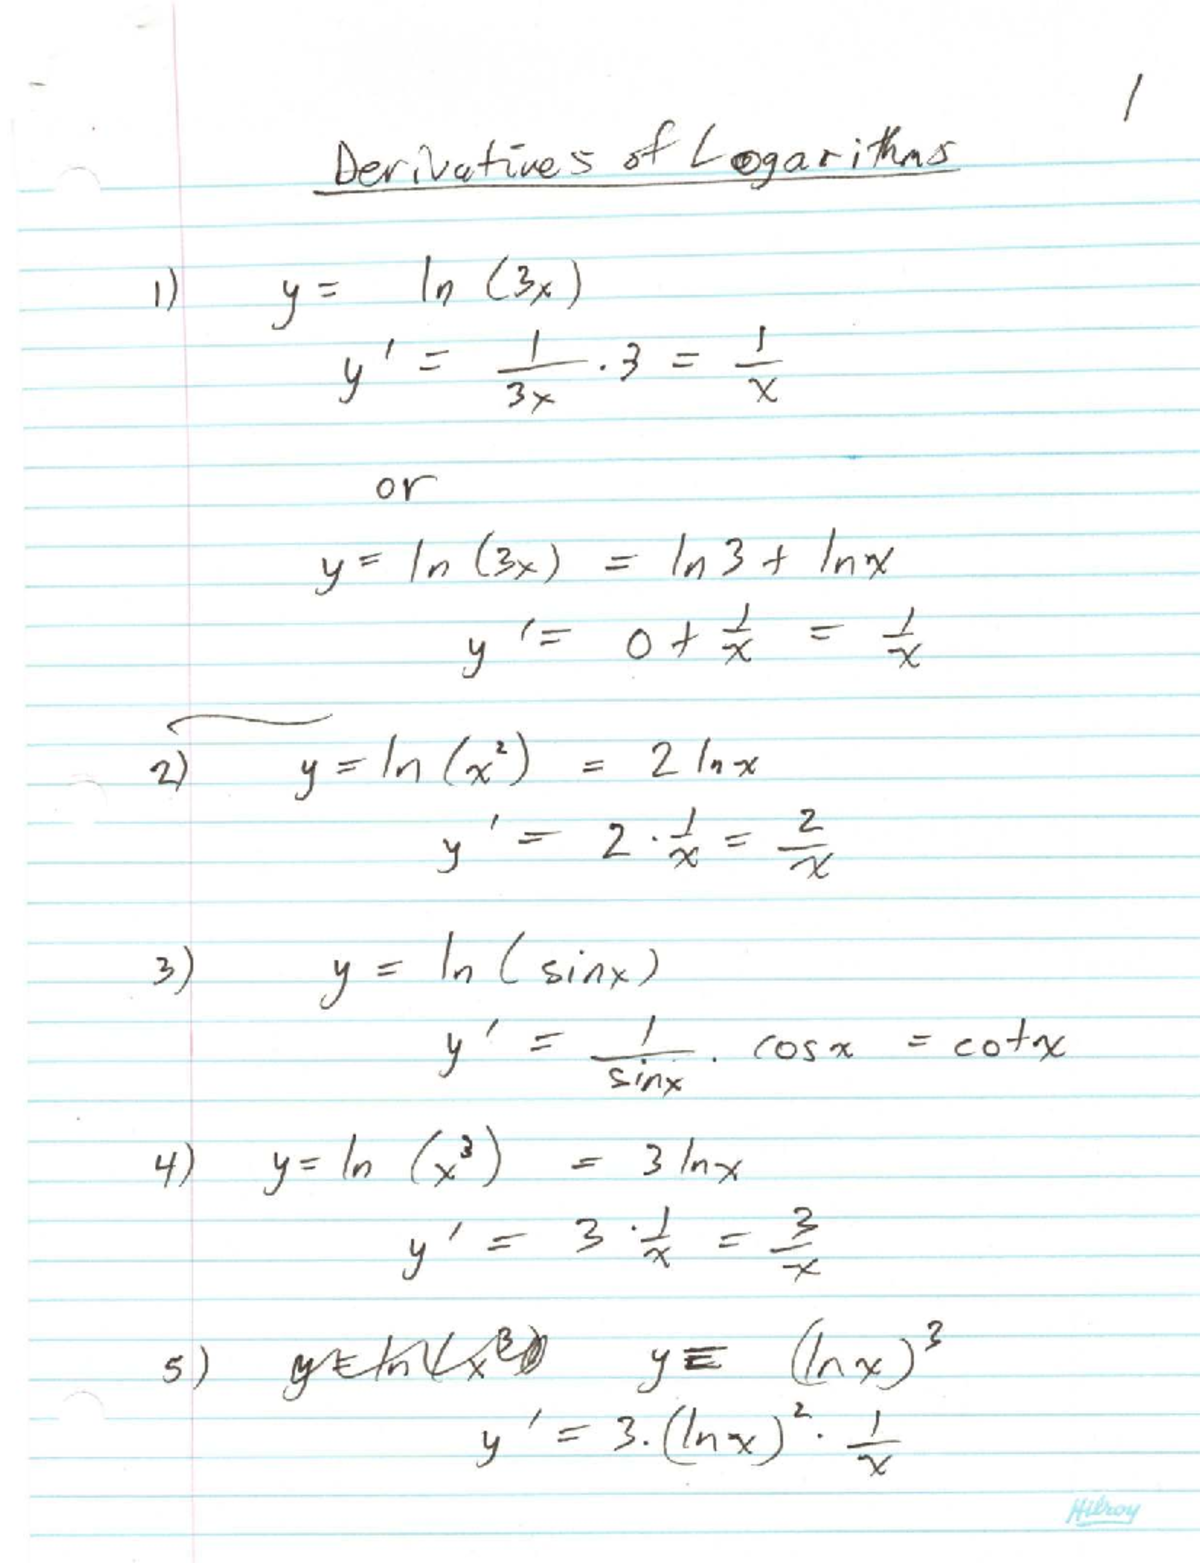 1
Derivatives of Logarithms
1) y = ln (3x)
y' = 1/3x · 3 = 1/x
or
y = ln (3x) = ln 3 + ln x
y' = 0 + 1/x = 1/x
2) y = ln (x²) = 2 ln x
y' = 2 · 1/x = 2/x
3) y = ln ( sin x )
y' = 1/sin x · cos x = cot x
4) y = ln (x³) = 3 ln x
y' = 3 · 1/x = 3/x
5) y = ln (x³) y = (ln x)³
y' = 3 · (ln x)² · 1/x
Hilroy